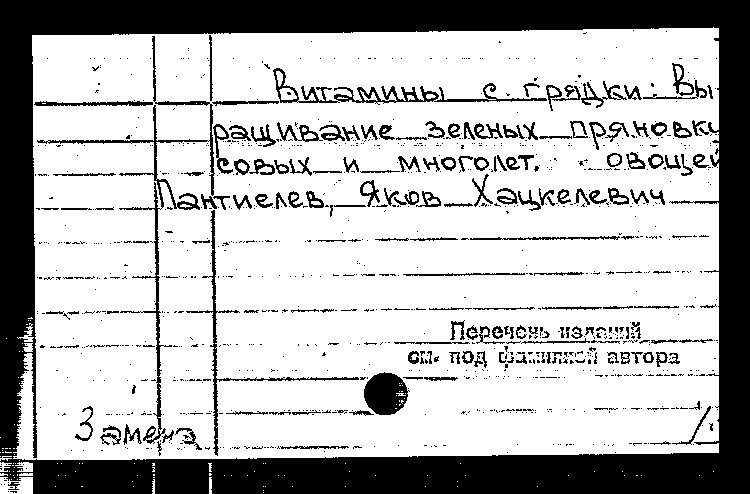 Витамины с грядки: Вы-
ращивание зеленых пряновку
совых и многолет. овощей
Пантиелев, Яков Хацкелевич
Перечень изданий
см. под фамилией автора
Замена